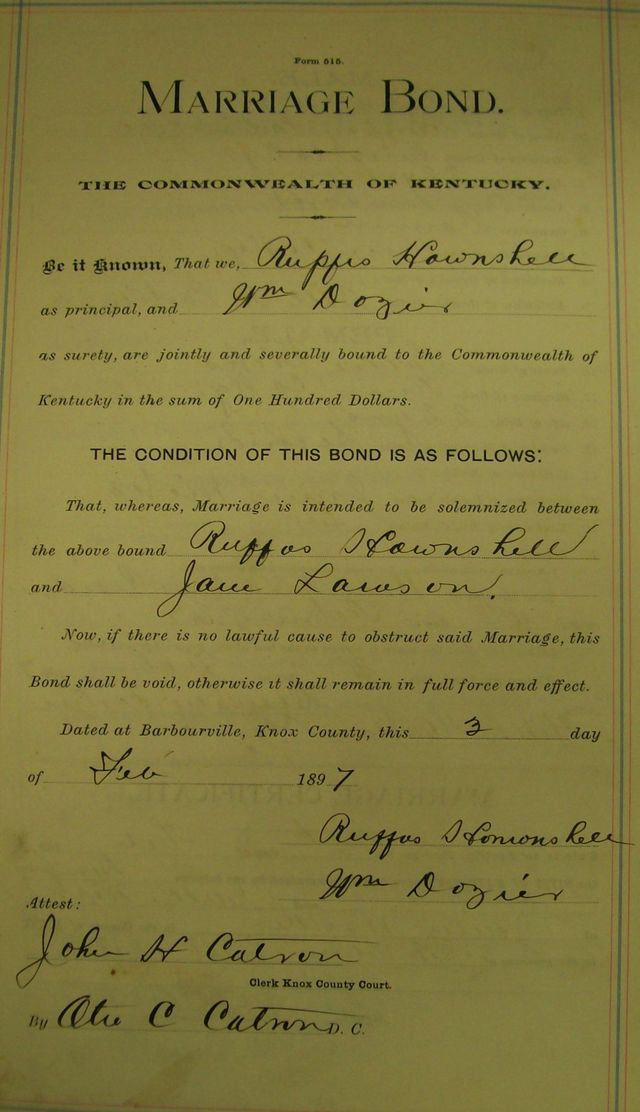 Form 515.
MARRIAGE BOND.
THE COMMONWEALTH OF KENTUCKY.
Be it Known, That we, Ruffus Hownshell
as principal, and Wm Dozier
as surety, are jointly and severally bound to the Commonwealth of
Kentucky in the sum of One Hundred Dollars.
THE CONDITION OF THIS BOND IS AS FOLLOWS:
That, whereas, Marriage is intended to be solemnized between
the above bound Ruffus Hownshell
and Jane Lawson.
Now, if there is no lawful cause to obstruct said Marriage, this
Bond shall be void, otherwise it shall remain in full force and effect.
Dated at Barbourville, Knox County, this 3 day
of Feb 1897
Ruffus Hownshell
Wm Dozier
Attest:
John H Catron
Clerk Knox County Court.
By C Catron D. C.